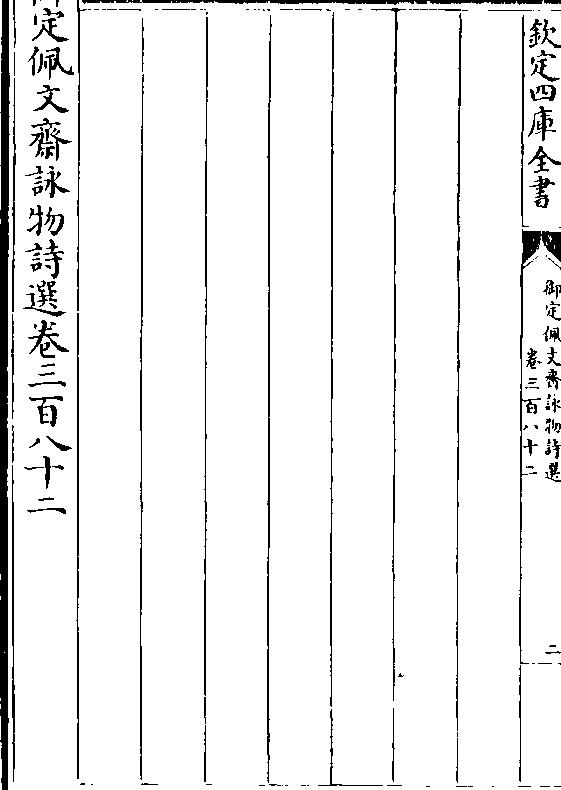 欽定四庫全書
御定佩文齋詠物詩選
卷三百八十二
二
御定佩文齋詠物詩選卷三百八十二